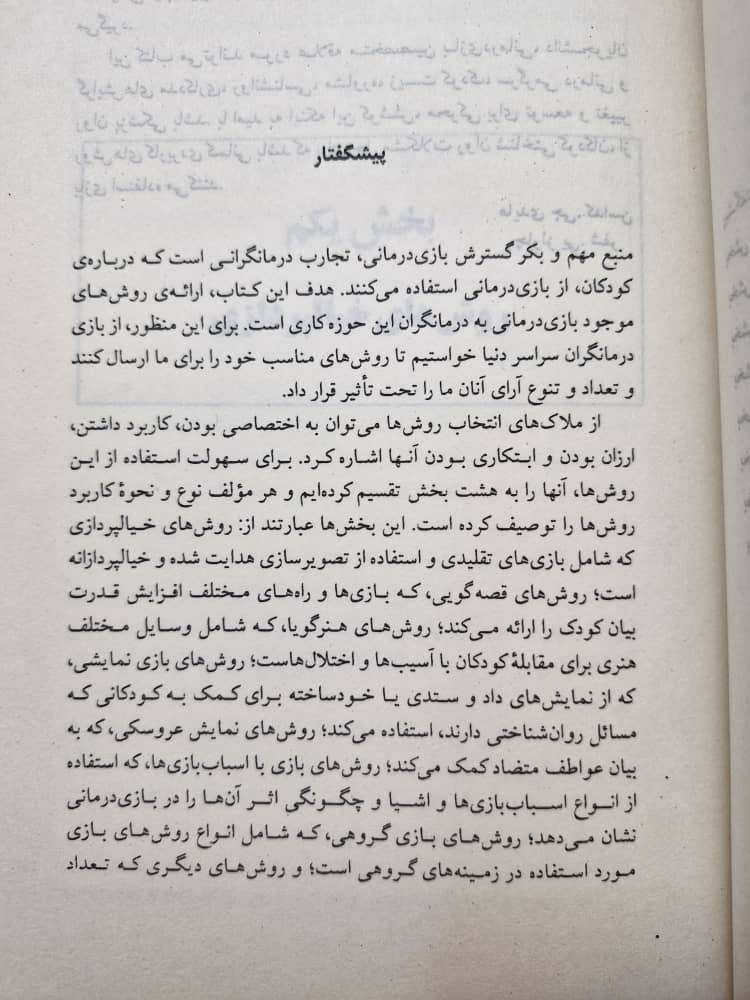 پیشگفتار
منبع مهم و بکر گسترش بازی‌درمانی، تجارب درمانگرانی است که درباره‌ی
کودکان، از بازی‌درمانی استفاده می‌کنند. هدف این کتاب، ارائه‌ی روش‌های
موجود بازی‌درمانی به درمانگران این حوزه‌کاری است. برای این منظور، از بازی
درمانگران سراسر دنیا خواستیم تا روش‌های مناسب خود را برای ما ارسال کنند
و تعداد و تنوع آرای آنان ما را تحت تأثیر قرار داد.
از ملاک‌های انتخاب روش‌ها می‌توان به اختصاصی بودن، کاربرد داشتن،
ارزان بودن و ابتکاری بودن آنها اشاره کرد. برای سهولت استفاده از این
روش‌ها، آنها را به هشت بخش تقسیم کرده‌ایم و هر مؤلف نوع و نحوهٔ کاربرد
روش‌ها را توصیف کرده است. این بخش‌ها عبارتند از: روش‌های خیالپردازی
که شامل بازی‌های تقلیدی و استفاده از تصویرسازی هدایت شده و خیالپردازانه
است؛ روش‌های قصه‌گویی، که بازی‌ها و راه‌های مختلف افزایش قدرت
بیان کودک را ارائه می‌کند؛ روش‌های هنرگویا، که شامل وسایل مختلف
هنری برای مقابلهٔ کودکان با آسیب‌ها و اختلال‌هاست؛ روش‌های بازی نمایشی،
که از نمایش‌های داد و ستدی یا خودساخته برای کمک به کودکانی که
مسائل روان‌شناختی دارند، استفاده می‌کند؛ روش‌های نمایش عروسکی، که به
بیان عواطف متضاد کمک می‌کند؛ روش‌های بازی با اسباب‌بازی‌ها، که استفاده
از انواع اسباب‌بازی‌ها و اشیا و چگونگی اثر آن‌ها را در بازی‌درمانی
نشان می‌دهد؛ روش‌های بازی گروهی، که شامل انواع روش‌های بازی
مورد استفاده در زمینه‌های گروهی است؛ و روش‌های دیگری که تعداد